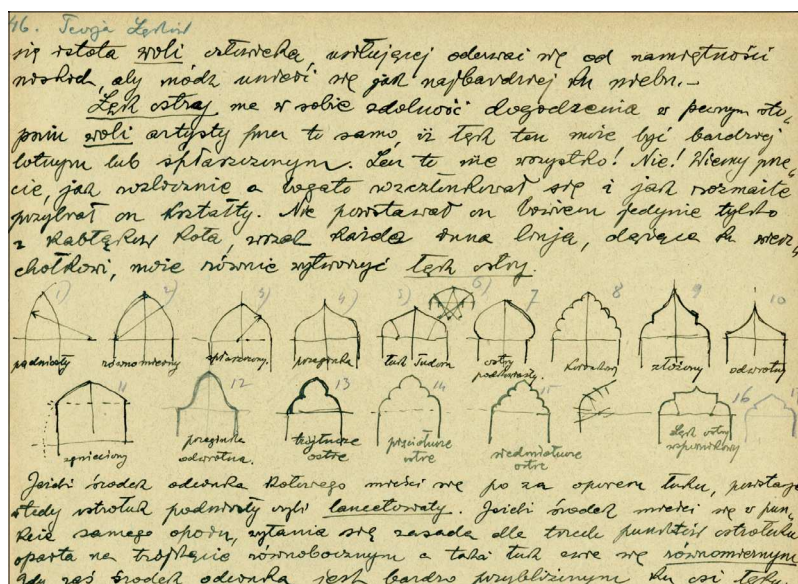 46. Teorja Łęków
się istota woli człowieka, usiłującej oderwać się od namiętności
niskich, aby módz unieść się jak najbardziej ku niebu.—
Łęk ostry ma w sobie zdolność dogodzenia w pewnym sto„
pniu woli artysty przez to samo, iż łęk ten może być bardziej
lotnym lub spłaszczonym. Lecz to nie wszystko! Nie! Wiemy prze„
cie, jak rozlicznie a bogato rozczłonkował się i jak rozmaite
przybrał on kształty. Nie powstawał on bowiem jedynie tylko
z kabłąków koła, wszak każda inna linja, dążąca ku wierz„
chołkowi, może równie wytworzyć łęk ostry.
1) 2) 3) 4) 5) 6) 7 8 9 10
podniosły równomierny spłaszczony. przeginka łuk Tudora ostry podkowiasty. złożony odwrotny
11 12 13 14 15 16
zgnieciony przeginka odwrotna. trójłucze ostre pięciołucze ostre siedmiołucze ostre łęk ostry
Jeżeli środek odcinka kołowego mieści się po za oporem łuku, powstaje
wtedy ostrołuk podniosły czyli lancetowaty. Jeżeli środek mieści się w pun„
kcie samego oporu, zasada dla trzech punktów ostrołuku
oparta na trójkącie równobocznym a taki łuk zwie się równomiernym
gdy zaś środek odcinka jest bardzo przybliżonym ku osi łęku